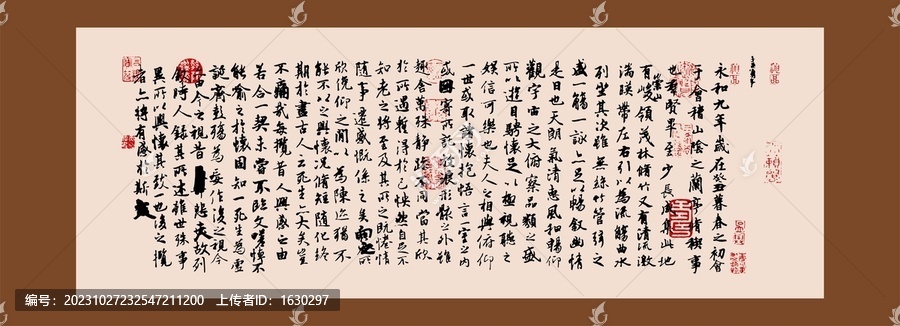 永和九年歲在癸丑暮春之初會
于會稽山陰之蘭亭脩禊事
也群賢畢至少長咸集此地
有崇山峻領茂林脩竹又有清流激
湍暎帶左右引以為流觴曲水
列坐其次雖無絲竹管弦之
盛一觴一詠亦足以暢敘幽情
是日也天朗氣清惠風和暢仰
觀宇宙之大俯察品類之盛
所以遊目騁懷足以極視聽之
娛信可樂也夫人之相與俯仰
一世或取諸懷抱悟言一室之內
或因寄所託放浪形骸之外雖
趣舍萬殊靜躁不同當其欣
於所遇暫得於己快然自足不
知老之將至及其所之既惓情
隨事遷感慨係之矣向之所
欣俛仰之間以為陳迹猶不
能不以之興懷況脩短隨化終
期於盡古人云死生亦大矣豈
不痛哉每攬昔人興感之由
若合一契未嘗不臨文嗟悼不
能喻之於懷固知一死生為虛
誕齊彭殤為妄作後之視今
亦由今之視昔悲夫故列
敘時人錄其所述雖世殊事
異所以興懷其致一也後之攬
者亦將有感於斯文
编号：20231027232547211200 上传者ID：1630297